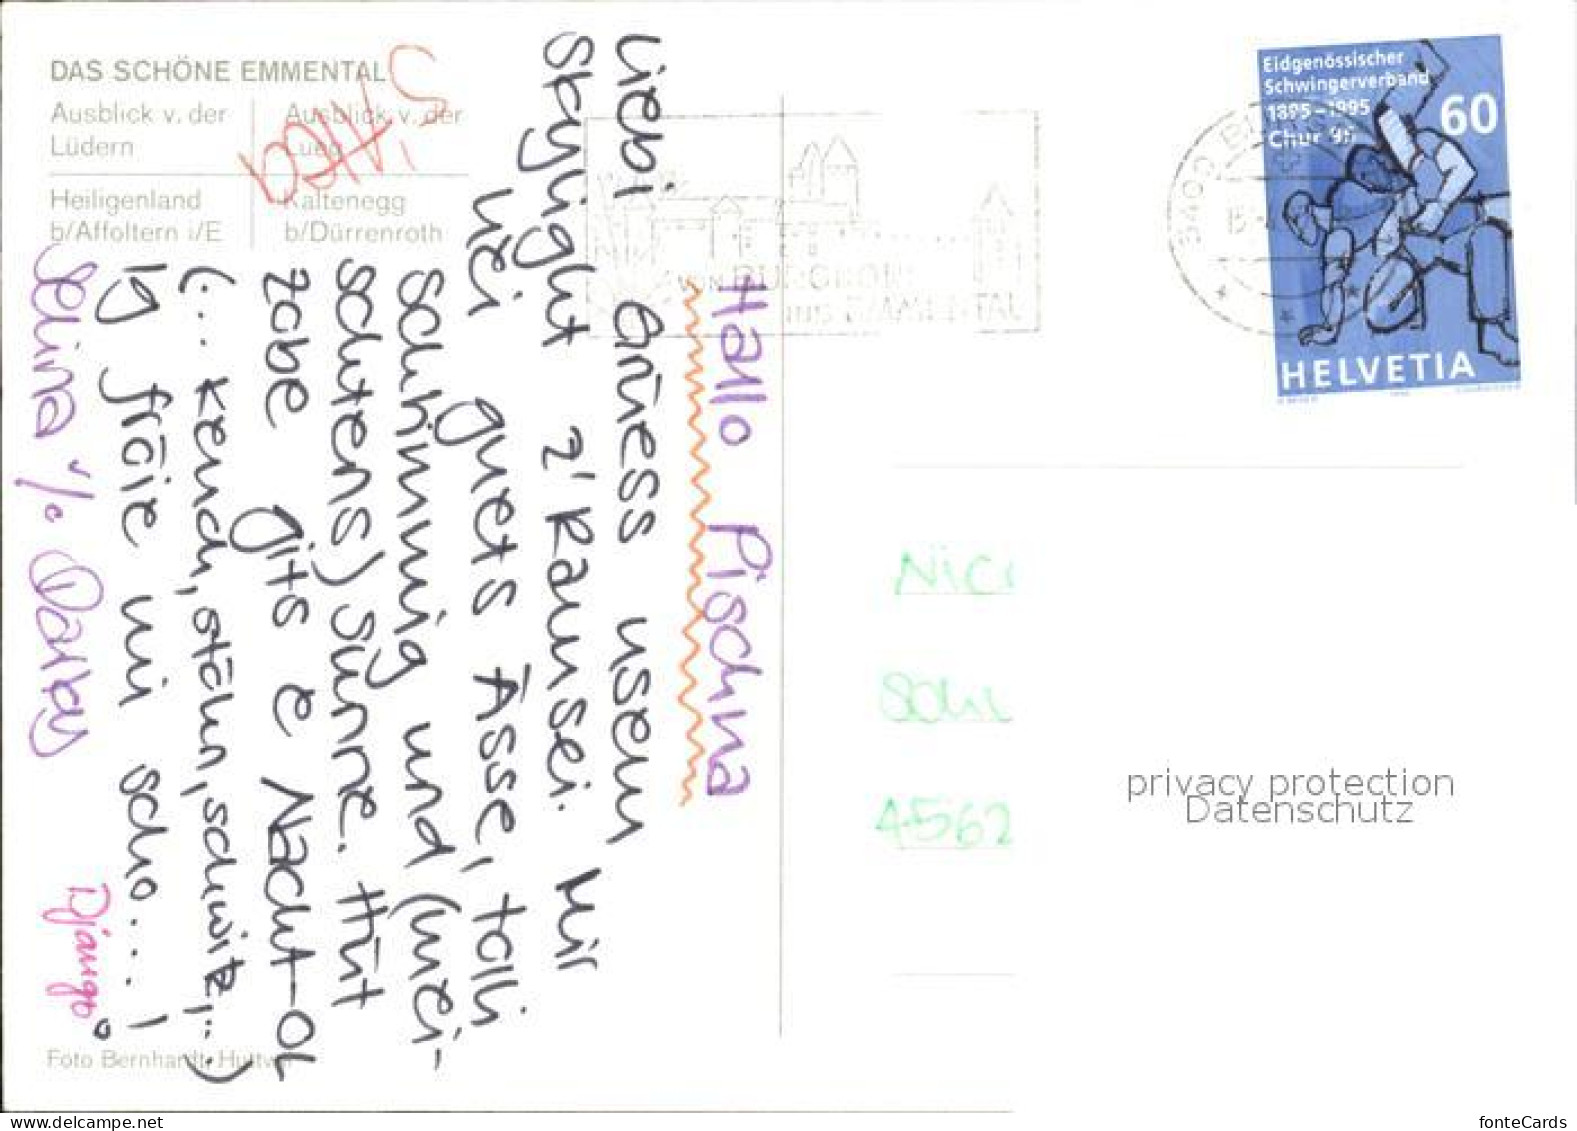 DAS SCHÖNE EMMENTAL
Ausblick v. der
Lüdern
Ausblick v. der
Lueg
Heiligenland
b/Affoltern i/E
Kaltenegg
b/Dürrenroth
Hallo Pischna
Liebi Grüess usem
Skylight z'Ramsei. Mir
hei guets Ässe, tolli
Schtimmig und (mei-
schtens) Sunne. Hüt
zobe gits e Nacht-OL
(... kench, stöhn, schwitz, ...)
Ig fröie mi scho....!
Selina v/o Darky
Django
Foto Bernhardt, Huttwil
Eidgenössischer
Schwingerverband
1895-1995
Chur 95
60
HELVETIA
3400
VON BURGDORF
INS EMMENTAL
4562
privacy protection
Datenschutz
fonteCards